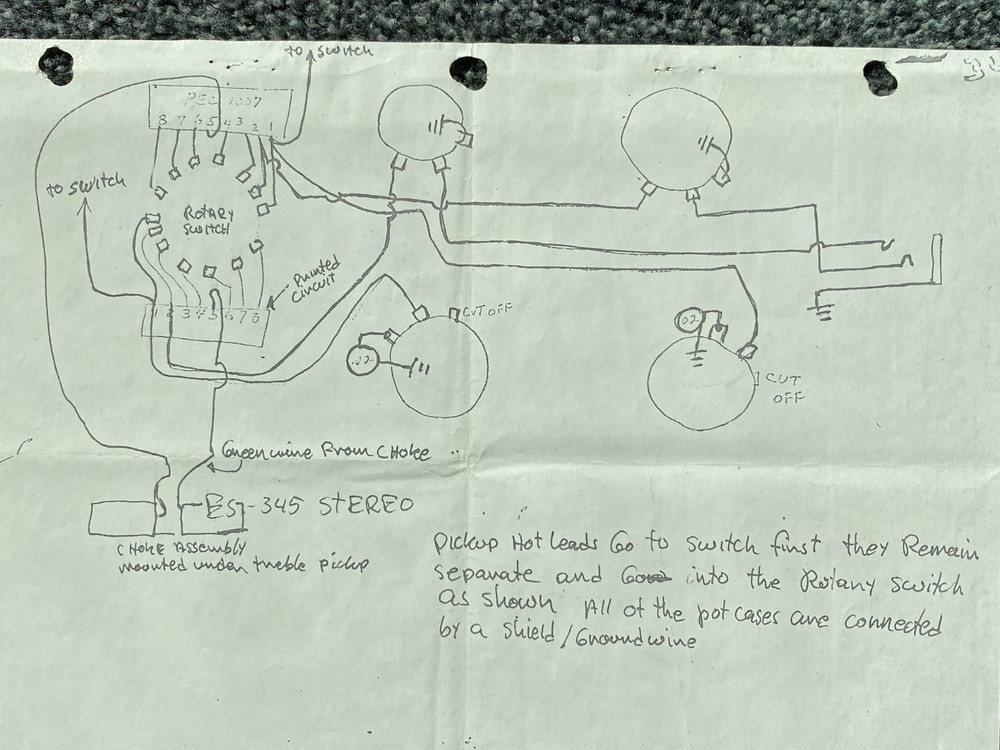 to switch
8 7 6 5 4 3 2 1
to switch
ROTARY
SWITCH
Printed
circuit
1 2 3 4 5 6 7 8
CUT OFF
.02
.02
CUT
OFF
Green wire From CHOKE
ES-345 STEREO
CHOKE ASSEMBLY
mounted under treble pickup
Pickup Hot leads Go to switch first they Remain
separate and Go into the Rotary switch
as shown All of the pot cases are connected
by a shield/Groundwire